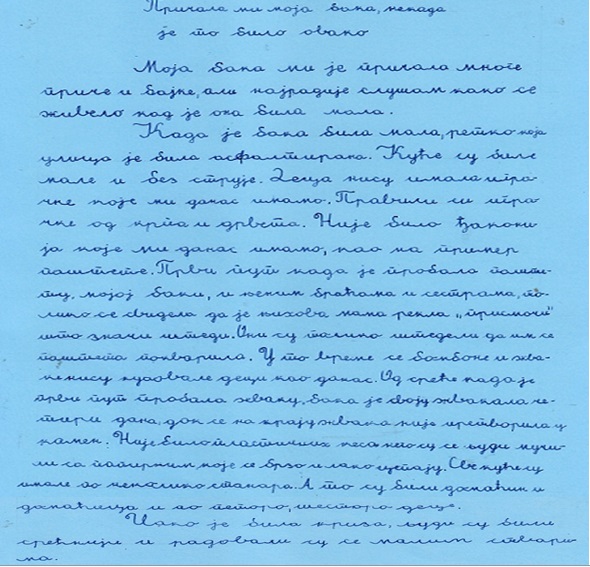 Причала ми моја бака, некада
је то било овако
Моја бака ми је причала многе
приче и бајке, али најрадије слушам како се
живело кад је она била мала.
Када је бака била мала, ретко која
улица је била асфалтирана. Куће су биле
мале и без струје. Деца нису имала игра-
чке које ми данас имамо. Правили су игра-
чке од крпа и дрвета. Није било ђакони
ја које ми данас имамо, као на пример
паштете. Први пут када је пробала пашт
ту, мојој баки, и њеним браћама и сестрама, то-
лико се свидела да је њихова мама рекла „присмочи“
што значи штеди. Они су толико штедели да им се
паштета покварила. У то време се бомбоне и жва-
ке нису куповале деци као данас. Од среће када је
први пут пробала жваку, бака је своју жвакала че-
тири дана, док се на крају жвака није претворила у
камен. Није било пластичних кеса него су се људи мучи-
ли са папирним које се брзо и лако цепају. Све куће су
имале по неколико станара. А то су били домаћин и
домаћица и по петоро, шесторо деце.
Иако је била криза, људи су били
срећнији и радовали су се малим ствари
ма.